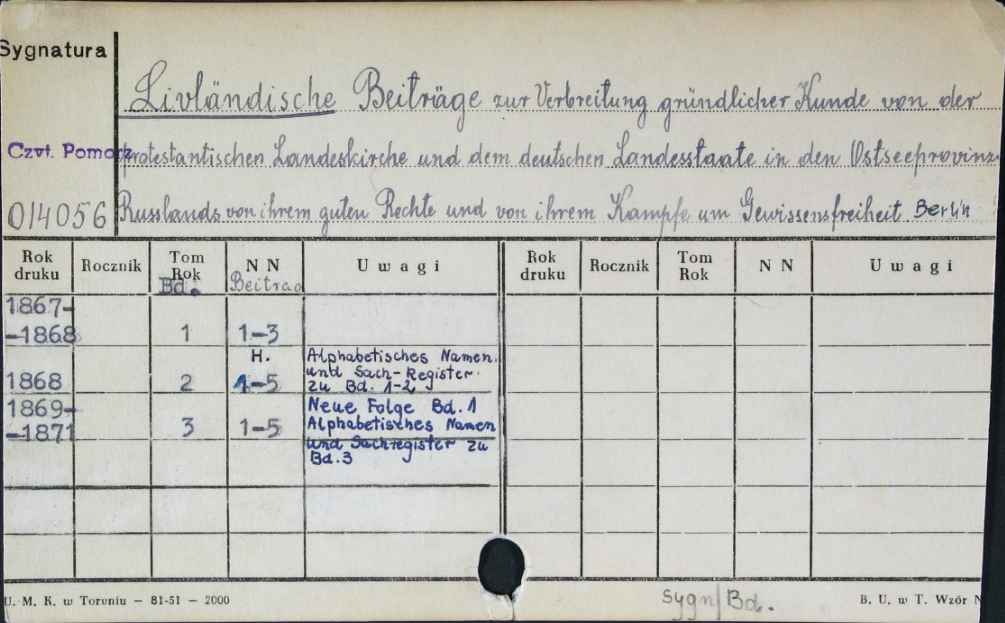 Sygnatura
Livländische Beiträge zur Verbreitung gründlicher Kunde von der
Czyt. Pomorz
protestantischen Landeskirche und dem deutschen Landesstaate in den Ostseeprovinz
014056
Russlands von ihrem guten Rechte und von ihrem Kampfe um Gewissensfreiheit Berlin
Rok druku Rocznik Tom Rok Bd. N N Beitrag U w a g i Rok druku Rocznik Tom Rok N N U w a g i
1867-
-1868 1 1-3
H. Alphabetisches Namen.
und Sach-Register.
1868 2 1-5 zu Bd. 1-2
1869- Neue Folge Bd. 1
-1871 3 1-5 Alphabetisches Namen
und Sachregister zu
Bd. 3
Sygn/Bd.
U. M. K. w Toruniu — 81-51 — 2000 B. U. w T. Wzór N